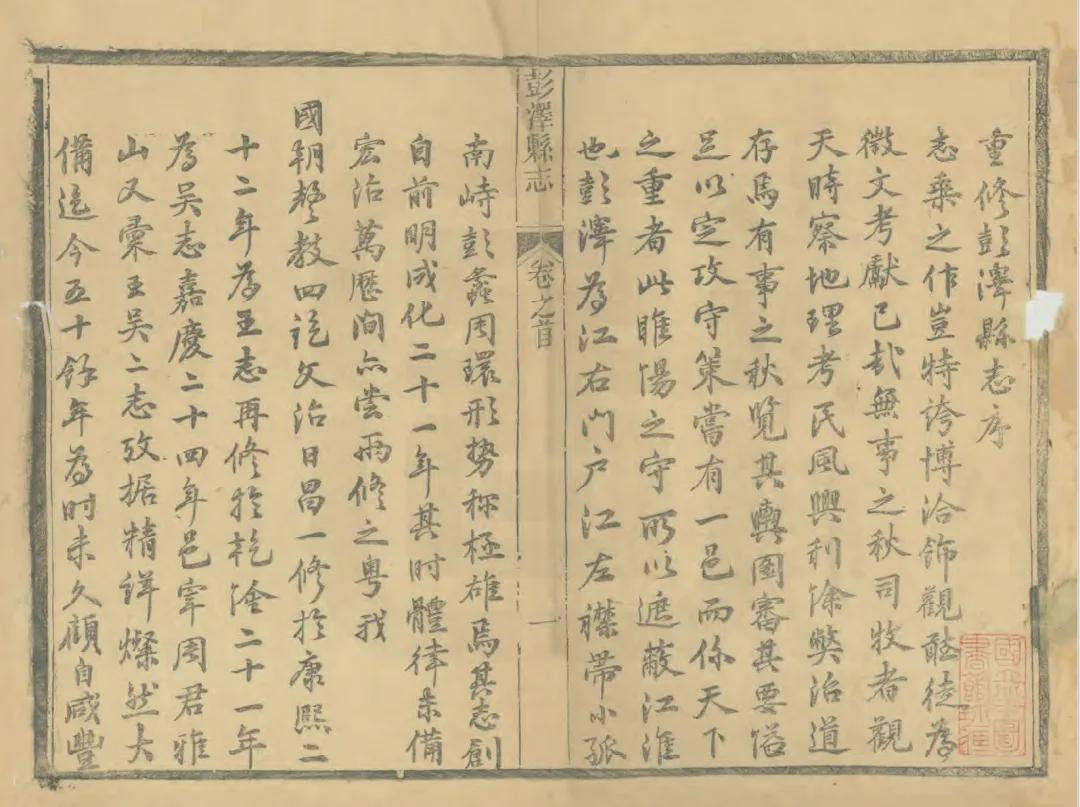 重修彭澤縣志序
志乘之作豈特誇博洽飾觀聽徒為
徵文考獻已哉無事之秋司牧者觀
天時察地理考民風興利除獘治道
存焉有事之秋覽其輿圖審其要隘
足以定攻守策嘗有一邑而係天下
之重者此睢陽之守所以遮蔽江淮
也彭澤為江右門户江左襟帶小孤
彭澤縣志
卷之首
一
南峙彭蠡周環形势称極雄焉其志創
自前明成化二十一年其时體律未備
宏治萬歷间亦尝兩修之粤我
國朝聲教四訖文治日昌一修於康熙二
十二年為王志再修於乾隆二十一年
為吴志嘉慶二十四年邑宰周君雅
山又彙王吴二志攷据精詳燦然大
備迄今五十餘年為时未久顧自咸豐